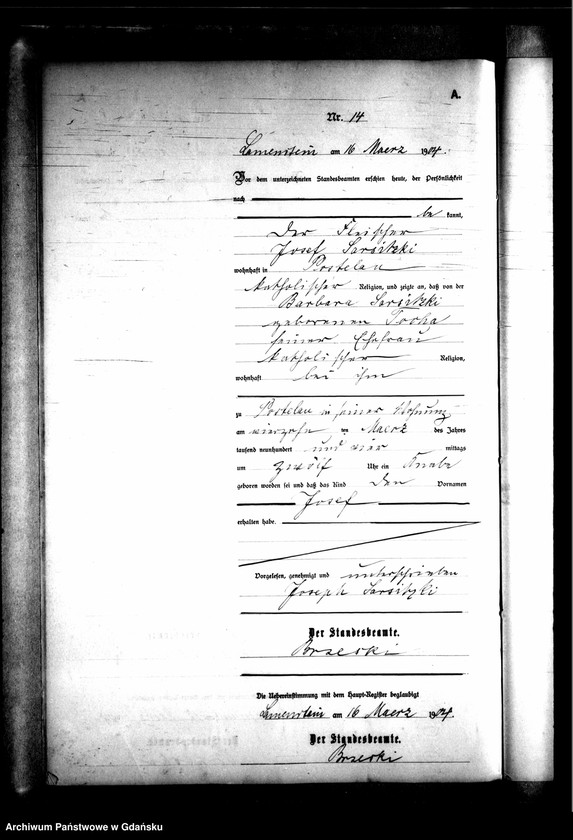 A.
Nr. 14
Lamenstein am 16 Maerz 1904.
Vor dem unterzeichneten Standesbeamten erschien heute, der Persönlichkeit
nach
be kannt,
Der Fleischer
Josef Sarsitzki
wohnhaft in Postelau
katholischer Religion, und zeigte an, daß von der
Barbara Sarsitzki
geborenen Socha
seiner Ehefrau
katholischer Religion,
wohnhaft bei ihm
zu Postelau in seiner Wohnung
am vierzehn ten Maerz des Jahres
tausend neunhundert und vier mittags
um zwölf Uhr ein Knabe
geboren worden sei und daß das Kind den Vornamen
Josef
erhalten habe.
Vorgelesen, genehmigt und unterschrieben
Joseph Sarsitzki
Der Standesbeamte.
Brzeski
Die Uebereinstimmung mit dem Haupt-Register beglaubigt
Lamenstein am 16 Maerz 1904.
Der Standesbeamte.
Brzeski
Archiwum Państwowe w Gdańsku